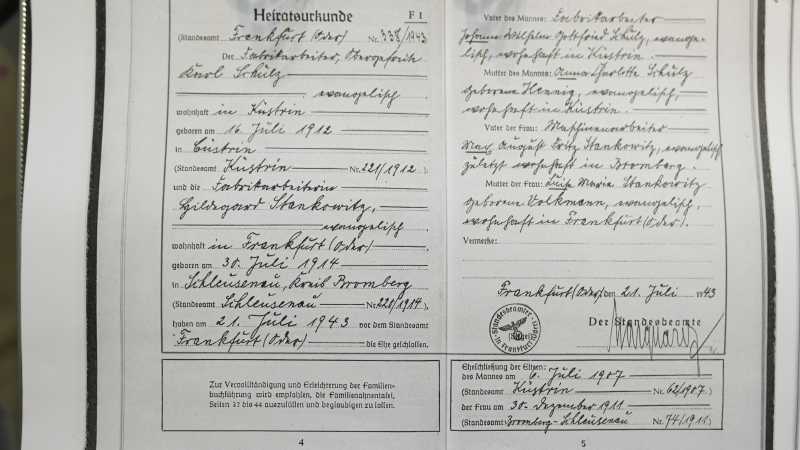 Heiratsurkunde F 1
(Standesamt Frankfurt (Oder) Nr. 338/1943
Der Fabrikarbeiter, Obergefreite
Karl Schulz
evangelisch
wohnhaft in Küstrin
geboren am 16. Juli 1912
in Cüstrin
(Standesamt Küstrin Nr. 221/1912)
und die Fabrikarbeiterin
Hildegard Stankowitz,
evangelisch
wohnhaft in Frankfurt (Oder)
geboren am 30. Juli 1914
in Schleusenau, Kreis Bromberg
(Standesamt Schleusenau Nr. 220/1914)
haben am 21. Juli 1943 vor dem Standesamt
Frankfurt (Oder) die Ehe geschlossen.
Zur Vervollständigung und Erleichterung der Familien-
buchführung wird empfohlen, die Familienahnentafel,
Seiten 37 bis 44 auszufüllen und beglaubigen zu lassen.
4
Vater des Mannes: Fabrikarbeiter
Johann Wilhelm Gottfried Schulz, evange-
lisch, wohnhaft in Küstrin.
Mutter des Mannes: Anna Charlotte Schulz
geborene Hennig, evangelisch,
wohnhaft in Küstrin.
Vater der Frau: Maschinenarbeiter
Max August Fritz Stankowitz, evangelisch
zuletzt wohnhaft in Bromberg.
Mutter der Frau: Luise Maria Stankowitz
geborene Volkmann, evangelisch,
wohnhaft in Frankfurt (Oder).
Vermerke:
Frankfurt (Oder) den 21. Juli 1943
Der Standesbeamte
(Siegel)
Eheschließung der Eltern:
des Mannes am 6. Juli 1907
(Standesamt Küstrin Nr. 62/1907)
der Frau am 30. Dezember 1911
(Standesamt Bromberg-Schleusenau Nr. 74/1911)
5